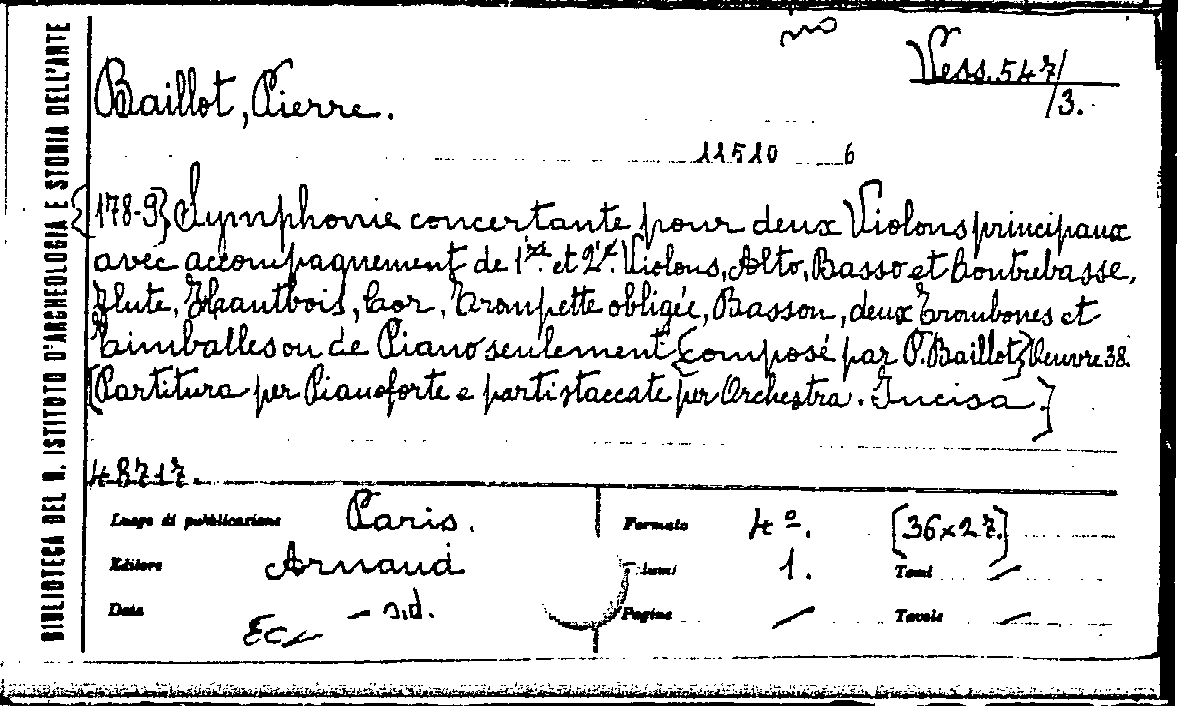 BIBLIOTECA DEL R. ISTITUTO D'ARCHEOLOGIA E STORIA DELL'ARTE
Vess. 547/
/3.
Baillot, Pierre.
11510 6
{178-9} Symphonie concertante pour deux Violons principaux
avec accompagnement de 1er. et 2d. Violons, Alto, Basso et Contrebasse,
Flute, Hautbois, Cor, Trompette obligée, Basson, deux Trombones et
Taimballes ou de Piano seulement {composé par P. Baillot} Oeuvre 38.
[Partitura per Pianoforte e parti staccate per Orchestra. Incisa.]
48717.
Luogo di pubblicazione Paris. Formato 4º. [36x27.]
Editore Arnaud 1. Tomi —
Data - s.d. Pagine — Tavole —